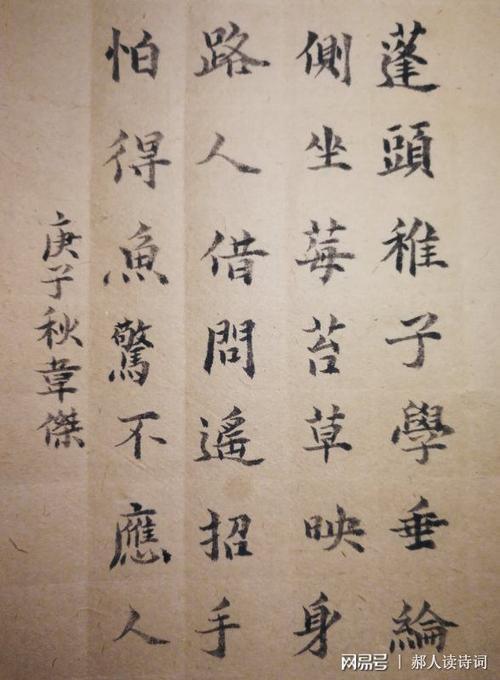 蓬頭稚子學垂綸
側坐莓苔草映身
路人借問遙招手
怕得魚驚不應人
庚子秋韋傑
网易号 | 郝人读诗词